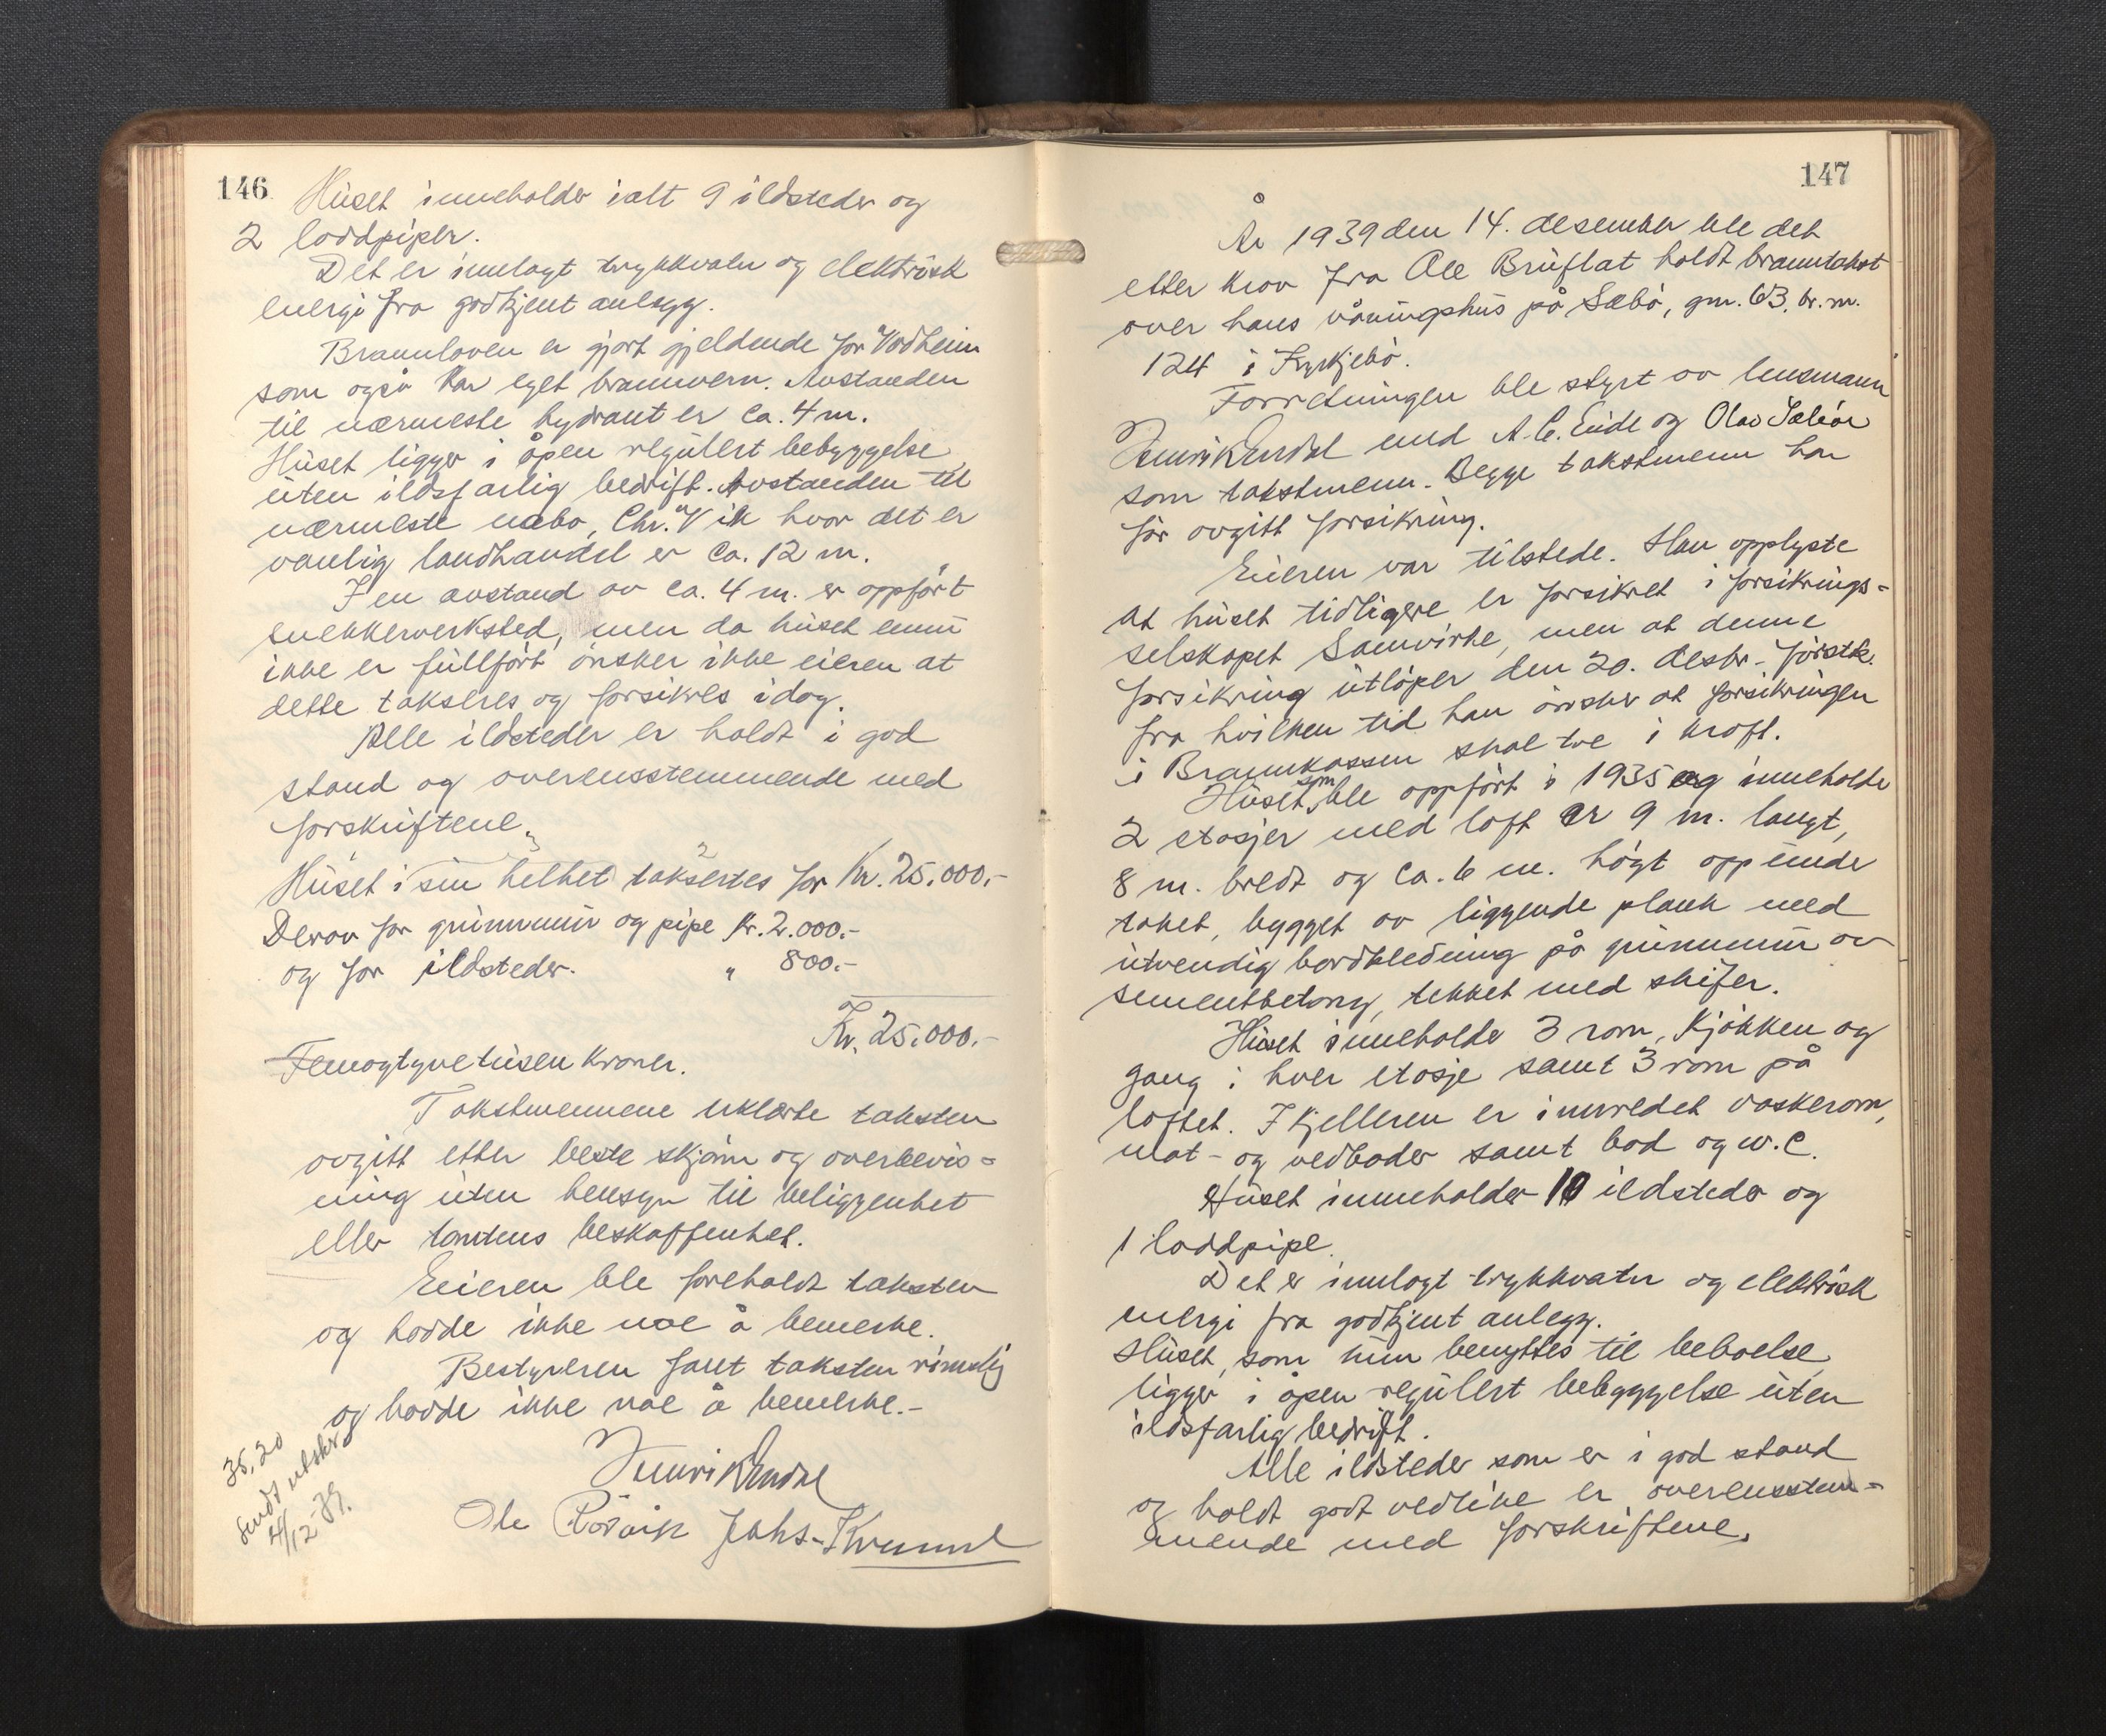 146
Huset inneholder ialt 9 ildsteder og
2 loddpiper.
Det er innlagt trykkvatn og elektrisk
energi fra godkjent anlegg.
Brannloven er gjort gjeldende for Vadheim
som også har eget brannvern. Avstanden
til nærmeste hydrant er ca. 4 m.
Huset ligger i åpen regulert bebyggelse
uten ildsfarlig bedrift. Avstanden til
nærmeste nabo, Chr. Vik hvor det er
vanlig landhandel er ca. 12 m.
I en avstand av ca. 4 m. er oppført
snekkerverksted, men da huset ennu
ikke er fullført ønsker ikke eieren at
dette takseres og forsikres idag.
Alle ildsteder er holdt i god
stand og overensstemmende med
forskriftene.
Huset i sin helhet taksertes for Kr. 25.000.-
Derav for grunnmur og pipe Kr. 2.000.-
og for ildsteder. " 800.-
Kr. 25.000.-
Femogtyvetusen kroner.
Takstmennene erklærte taksten
avgitt etter beste skjønn og overbevis=
ning uten hensyn til beliggenhet
eller tomtens beskaffenhet.
Eieren ble foreholdt taksten
og hadde ikke noe å bemerke.
Bestyreren fant taksten rimelig
og hadde ikke noe å bemerke.-
Henrik Endal
Ole Rörvik Johs.
35,20
Sendt utskr.
4/12-39.
147
År 1939 den 14. desember ble det
etter krav fra Ole Bruflat holdt branntakst
over hans våningshus på Sæbø, gnr. 63, br. nr.
124 i Kyrkjebø.
Forretningen ble styrt av lensmann
Henrik Endal med A. C. Eide og Olav
som takstmenn. Begge takstmenn har
før avgitt forsikring.
Eieren var tilstede. Han opplyste
at huset tidligere er forsikret i forsikrings=
selskapet Samvirke, men at denne
forsikring utløper den 20. desbr. førstk.
fra hvilken tid han ønsker at forsikringen
i Brannkassen skal tre i kraft.
Huset som ble oppført i 1935 og inneholder
2 etasjer med loft er 9 m. langt,
8 m. bredt og ca. 6 m. høgt opp under
taket, bygget av liggende plank med
utvendig bordkledning på grunnmur av
sementbetong, tekket med skifer.
Huset inneholder 3 rom, kjøkken og
gang i hver etasje samt 3 rom på
loftet. I kjelleren er innredet vaskerom,
mat- og vedboder samt bad og w.c.
Huset inneholder 10 ildsteder og
1 loddpipe.
Det er innlagt trykkvatn og elektrisk
energi fra godkjent anlegg.
Huset, som kun benyttes til beboelse,
ligger i åpen regulert bebyggelse uten
ildsfarlig bedrift.
Alle ildsteder som er i god stand
og holdt godt vedlike er overensstem=
mende med forskriftene.